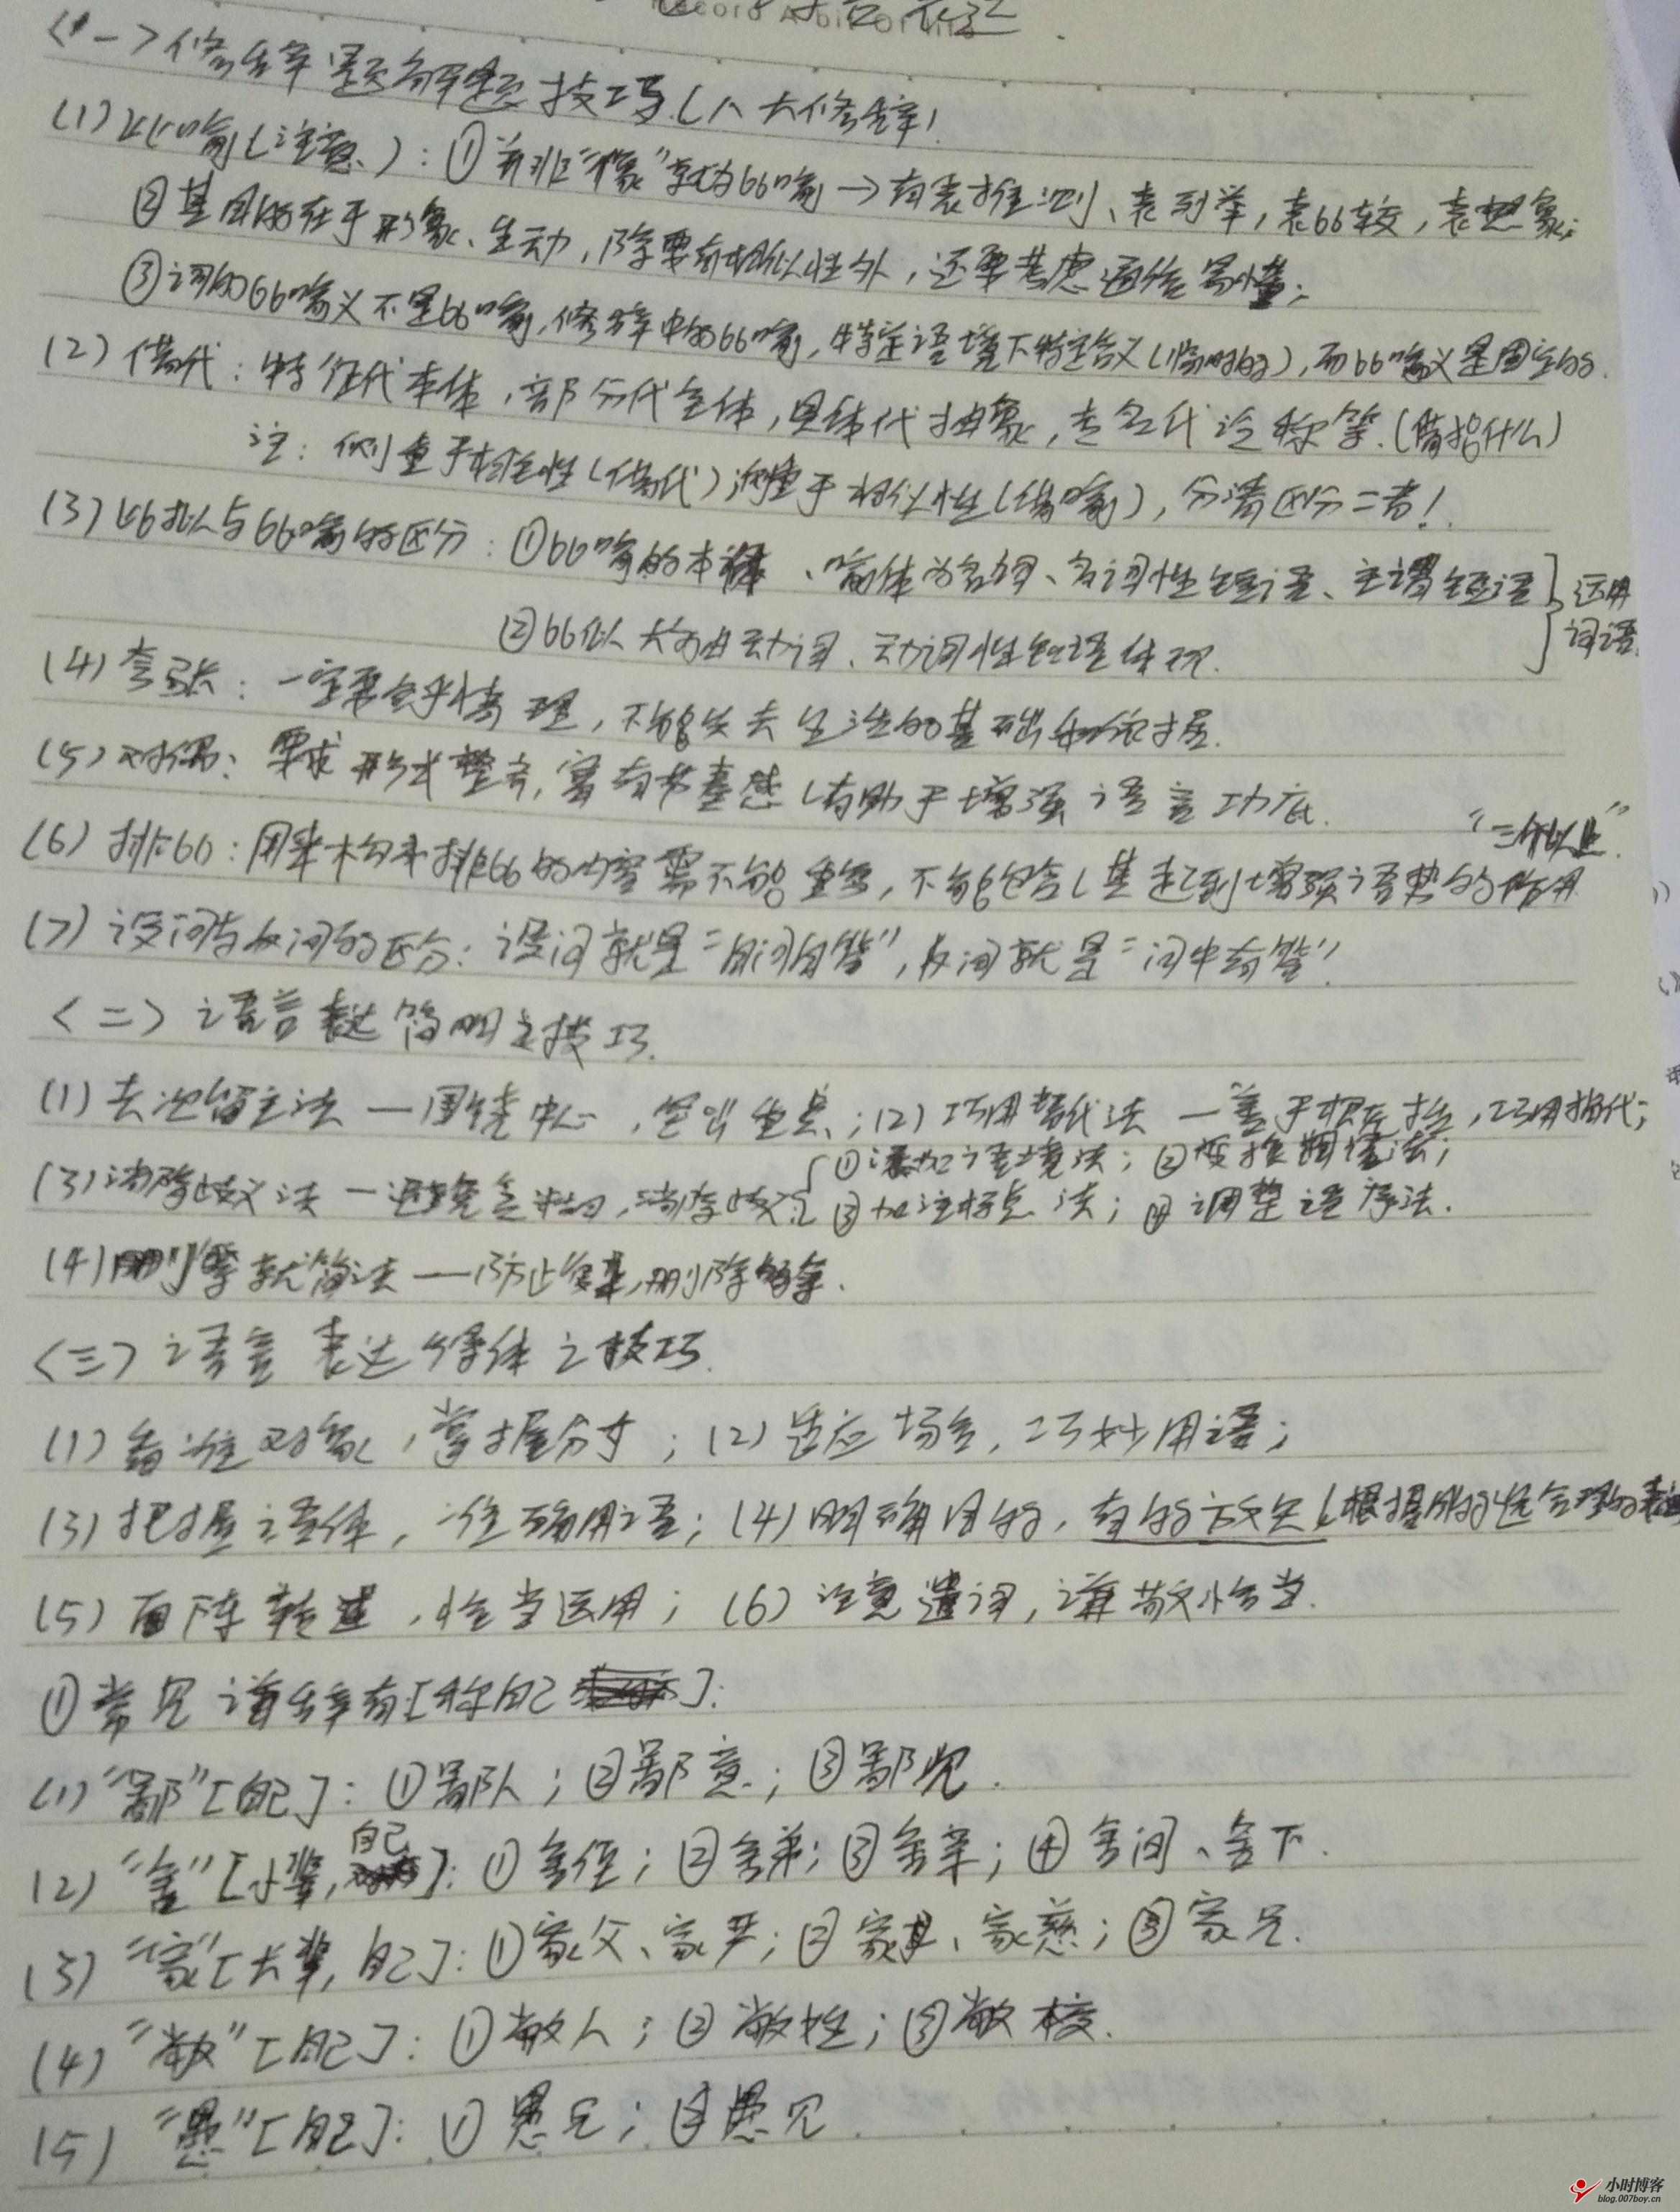 Record A bit Of life
<一>修辞题解题技巧(八大修辞!
(1)比喻(注意):①并非"像"就为比喻→有表推测、表列举,表比较,表想象;
②其目的在于形象、生动,除要有相似性外,还要考虑通俗易懂;
③词的比喻义不是比喻,修辞中的比喻,特定语境下特定含义(临时的),而比喻义是固定的.
(2)借代:特征代本体,部分代全体,具体代抽象,专名代泛称等.(借指什么)
注:侧重于相关性(借代)侧重于相似性(借喻),分清区分二者!
(3)比拟与比喻的区分:①比喻的本体、喻体为名词、名词性短语、主谓短语 运用
②比拟大多由动词、动词性短语体现. 词语.
(4)夸张:一定要合乎情理,不能失去生活的基础和依据.
(5)对偶:要求形式整齐,富有节奏感(有助于增强语言功底. "三个以上".
(6)排比:用来构成排比的内容需不能重复,不能包含(其起到增强语势的作用
(7)设问与反问的区分:设问就是"自问自答",反问就是"问中有答"!
<二>语言表达简明之技巧.
(1)去次留主法—围绕中心,突出重点;(2)巧用替代法—善于概括,巧用指代;
(3)消除歧义法—避免含糊,消除歧义 ①添加语境法;②变换词语法;
③加注标点法;④调整语序法.
(4)删繁就简法——防止复杂,删除多余.
<三>语言表达得体之技巧.
(1)看准对象,掌握分寸;(2)适应场合,巧妙用语;
(3)把握语体,准确用语;(4)明确目的,有的放矢(根据目的选合理的表达
(5)直陈转述,恰当运用;(6)注意遣词,谦敬恰当.
①常见谦辞有[称自己]:
(1)"鄙"[自己]:①鄙人;②鄙意;③鄙见.
(2)"舍"[小辈,自己]:①舍侄;②舍弟;③舍亲;④舍间、舍下.
(3)"家"[大辈,自己]:①家父、家严;②家母、家慈;③家兄.
(4)"敝"[自己]:①敝人;②敝姓;③敝校.
(5)"愚"[自己]:①愚兄;②愚见
小时博客
blog.007boy.cn